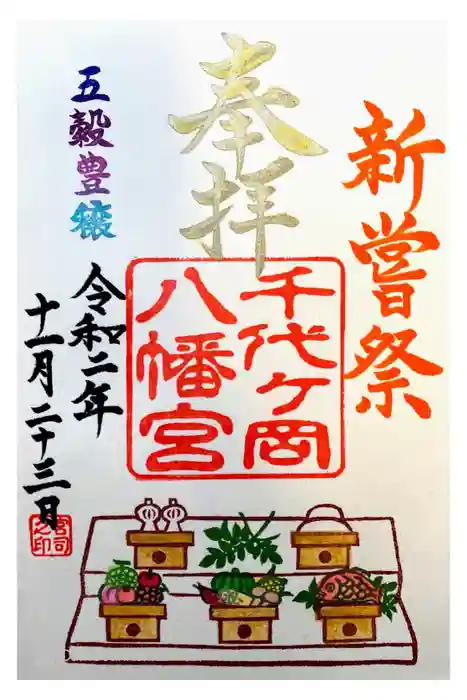 新嘗祭
奉拝
千代ヶ岡
八幡宮
五穀豊穣
令和二年
十一月二十三日
宮司
之印